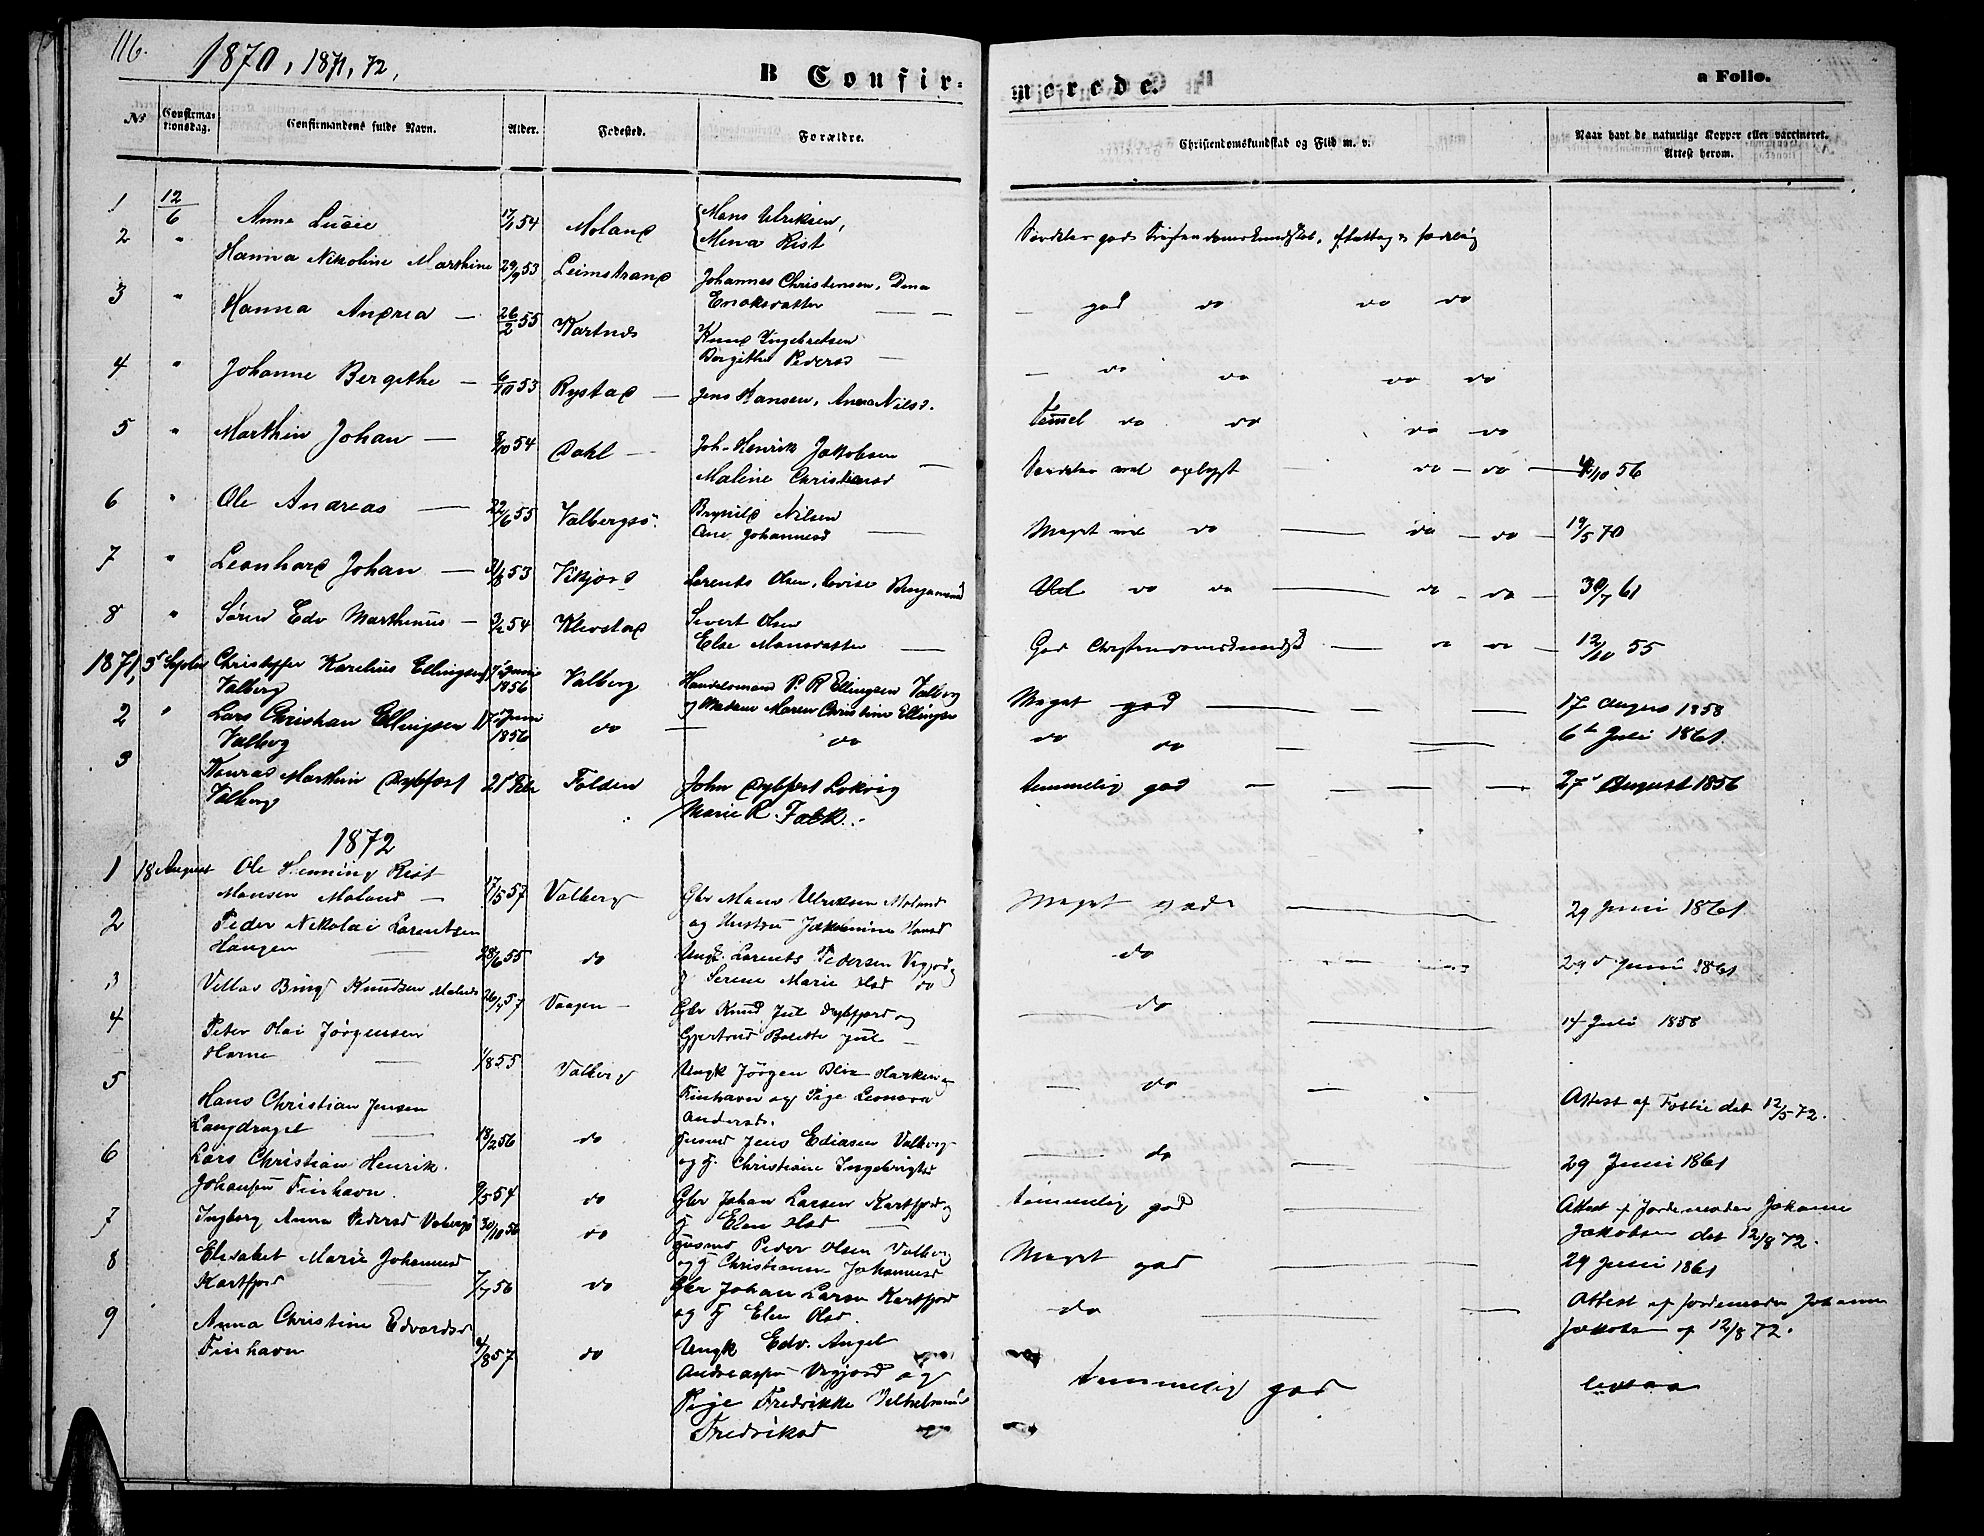 116.
1870, 1871, 72,
B Confir-
merede.
a Folio.
No
Confirma-
tionsdag.
Confirmandens fulde Navn.
Alder.
Fødested.
Forældre.
Christendomskundskab og Flid m. v.
Naar havt de naturlige Kopper eller vaccineret.
Attest herom.
1 12/6 Anna Lucie 54 Moland Mons Ulriksen,
Mena Rist
2 " Hanna Nikoline Marthine 29/9 53 Leimstrand Johannes Christensen, Dena
Enoksdatter
3 " Hanna Andrea — 26/2 55 Kartnes Knud Ingebretsen
Bergithe Pedersd — god do do do
4 " Johanne Bergithe — 6/10 53 Rystad — Jens Hansen, Anna Nilsd. — do do do do
5 " Marthin Johan — 54 Dahl — Joh. Henrik Jakobsen
Maline Christensd
do — do — 10 56
6 " Ole Andreas — 22/6 55 Valbergsø. Brynild Nilsen
Ane Johannesd — Meget vel do — do — do — 19/5 70
7 " Leonhard Johan — 53 Vikjord Lorents Olsen, Lovise Benjamind Vel do do — do — do — 30/7 61
8 " Søren Edv Marthinus — 3/2 54 Klevstad Sivert Olsen
Else Monsdatter — God — do — 12/10 55
1871, 3d Septbr Christoffer Karelius Ellingsen Juni
1856 Valberg Handelsmand P. R Ellingsen Valberg
Valberg og Madam Maren Christine Ellingsen Meget god — 17 August 1858
2 " Lars Christian Ellingsen Juni
1856 do — do do do — 6te Juli 1861.
Valberg
3 Konrad Marthin Dybfort 21de Febr Folden John Dybfort Lokvig temmelig god — 27d August 1856
Valberg Marie R. Falk.
1872
1 18 August Ole Henning Rist
Monsen Moland — 17/5 57 Valberg Gbr Mons Ulriksen Moland
og Hustru Jakobmine Hansd Meget god — 29 Juni 1861
2 Peder Nikolai Lorentsen
Haugen — 28/6 55 do Ungk. Lorents Pedersen Vigjord
Serene Marie Olsd do do — 29d Juni 1861
3 Villas Bing Knudsen 26/4 57 Vaagen — Gbr Knud Jul Dybfjord og
Gjertrud Bolette Jul — do — 14 Juli 1858
4 Peter Olai Jørgensen
Horne — 1/8 55 Valberg Ungk Jørgen
Finhavn og Pige Leonora
Andersd. — do — Attest af Fostie det 12/5 72.
5 Hans Christian Jensen
Langdraget — 18/2 56 do Husmd Jens Ediasen Valberg
og H. Christiane Ingebrigtsd — do — 29 Juni 1861
6 Lars Christian Henrik.
Johansen Finhavn. 9/5 54 do Gbr Johan Larsen Kartfjord og
H. Elen Olsd — temmelig god — Attest af Jordemoder Johanne
Jakobsen det 12/8 72.
7 Ingborg Anna Pedersd Valbergs 30/10 56 do Husmd Peder Olsen Valberg
og H Christianne Johannesd Meget god — 29 Juni 1861
8 Elisabet Marie Johannesd
Kartfjord 7/7 56 do Gbr Johan Larsen Kartfjord
og H Elen Olsd. do — Attest af Jordemoder Johanne
Jakobsen af 12/8 72.
9 Anna Christine Edvardsd
Finhavn 4/8 57 do Ungk Edv. Angel
Andreassen Vigjord og
Pige Fredrikke Vilhelmine
Fredriksd temmelig god